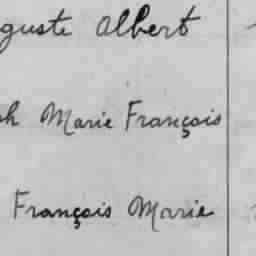 guste Albert
ph Marie François
François Marie